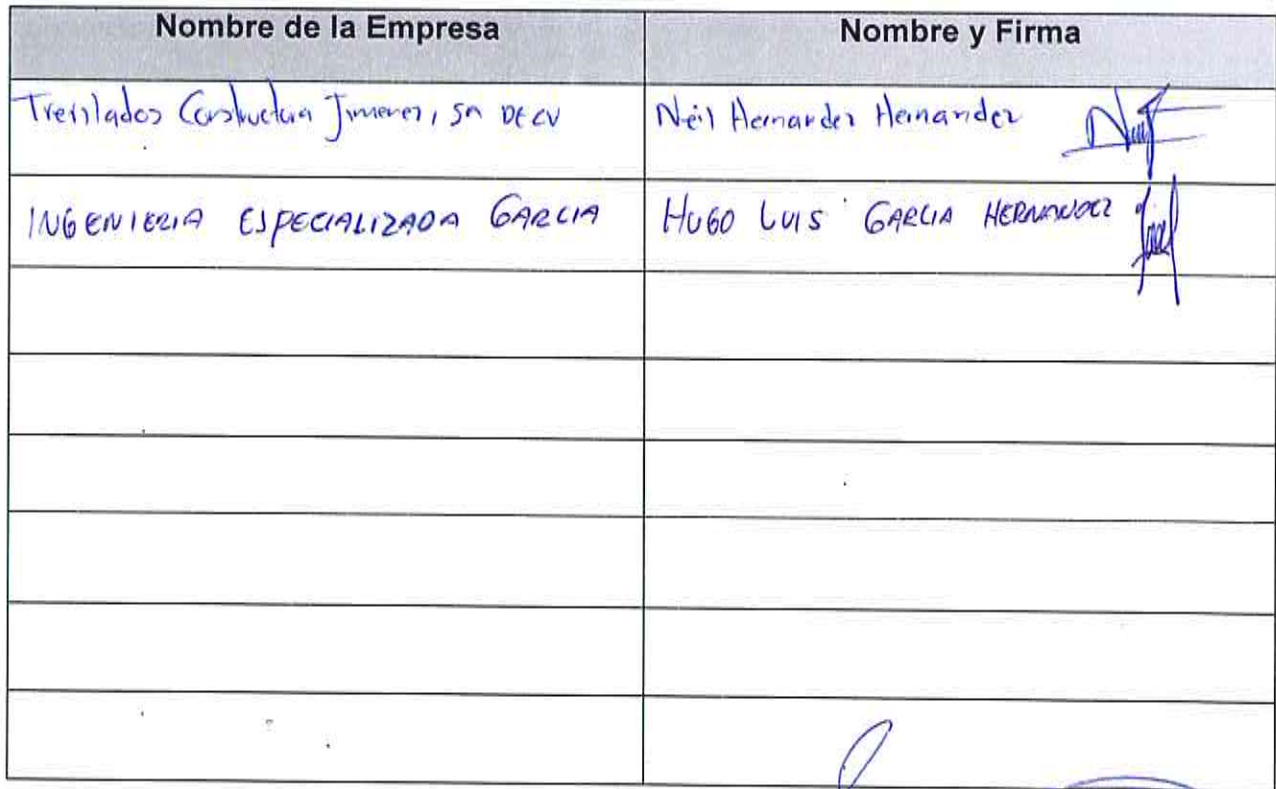 Nombre de la Empresa
Nombre y Firma
Treslados Constructora Jimenez, SA DE CV
Neil Hernandez Hernandez
INGENIERIA ESPECIALIZADA GARCIA
HUGO LUIS GARCIA HERNANDEZ